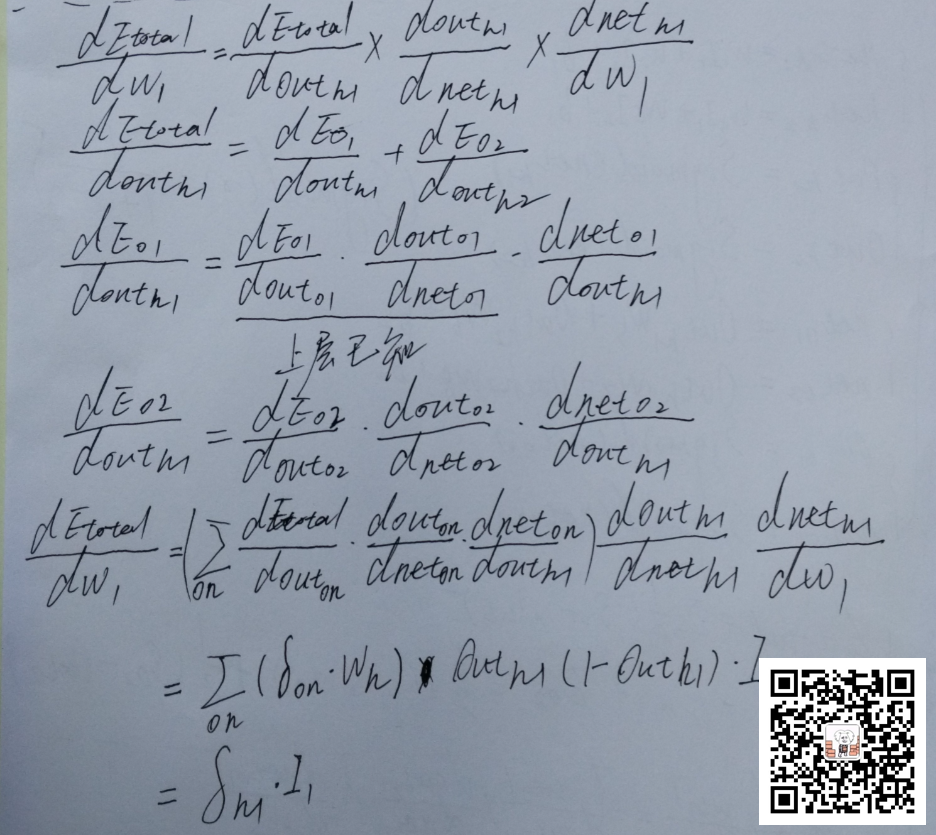 dEtotal/dW₁ = dEtotal/douth₁ × douth₁/dneth₁ × dneth₁/dW₁
dEtotal/douth₁ = dEo₁/douth₁ + dEo₂/douth₂
dEo₁/douth₁ = dEo₁/douto₁ · douto₁/dneto₁ · dneto₁/douth₁
上层已知
dEo₂/douth₁ = dEo₂/douto₂ · douto₂/dneto₂ · dneto₂/douth₁
dEtotal/dW₁ = (∑on dEtotal/douton · douton/dneton · dneton/douth₁) douth₁/dneth₁ dneth₁/dw₁
= ∑on (δon · Wh) × Outh₁ (1 - Outh₁) · I
= δh₁ · I₁